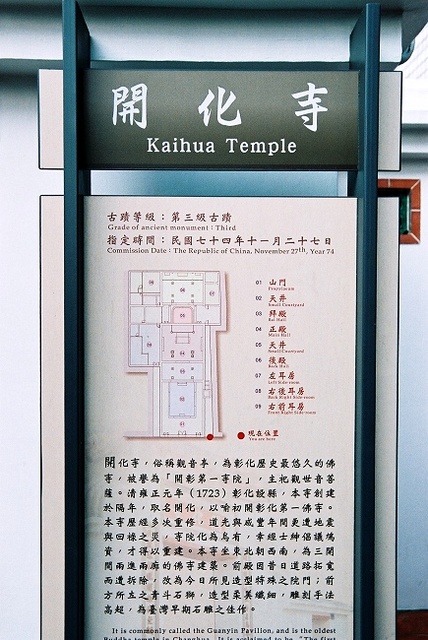 開化寺
Kaihua Temple
古蹟等級：第三級古蹟
Grade of ancient monument : Third
指定時間：民國七十四年十一月二十七日
Commission Date : The Republic of China, November 27th, Year 74
01 山門
02 天井
Small Courtyard
03 拜殿
04 正殿
Main Hall
05 天井
Small Courtyard
06 後殿
Back Hall
07 左耳房
Left Side-room
08 右後耳房
Back Right Side-room
09 右前耳房
Front Right Side-room
現在位置
You are here
開化寺，俗稱觀音亭，為彰化歷史最悠久的佛
寺，被譽為「開彰第一寺院」，主祀觀世音菩
薩。清雍正元年（1723）彰化設縣，本寺創建
於隔年，取名開化，以喻初開彰化第一佛寺。
本寺歷經多次重修，道光與咸豐年間更遭地震
與回祿之災，寺院化為烏有，幸經士紳倡議鳩
資，才得以重建。本寺坐東北朝西南，為三開
間兩進兩廊的佛寺建築。前殿因昔日道路拓寬
而遭拆除，改為今日所見造型特殊之院門；前
方所立之青斗石獅，造型柔美纖細，雕刻手法
高超，為臺灣早期石雕之佳作。
It is commonly called the Guanyin Pavilion, and is the oldest
Buddha temple in Changhua. It is acclaimed to be "The first